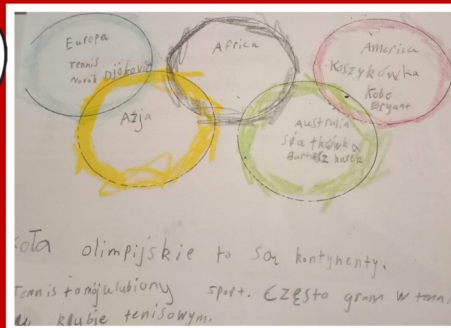 Europa
Tennis
Novak Djoković
Africa
America
Koszykówka
Kobe
Bryant
Azja
Australia
Siatkówka
Bartosz
koła olimpijskie to są kontynenty.
Tennis to mój ulubiony sport. Często gram w tenisa
w klubie tenisowym.